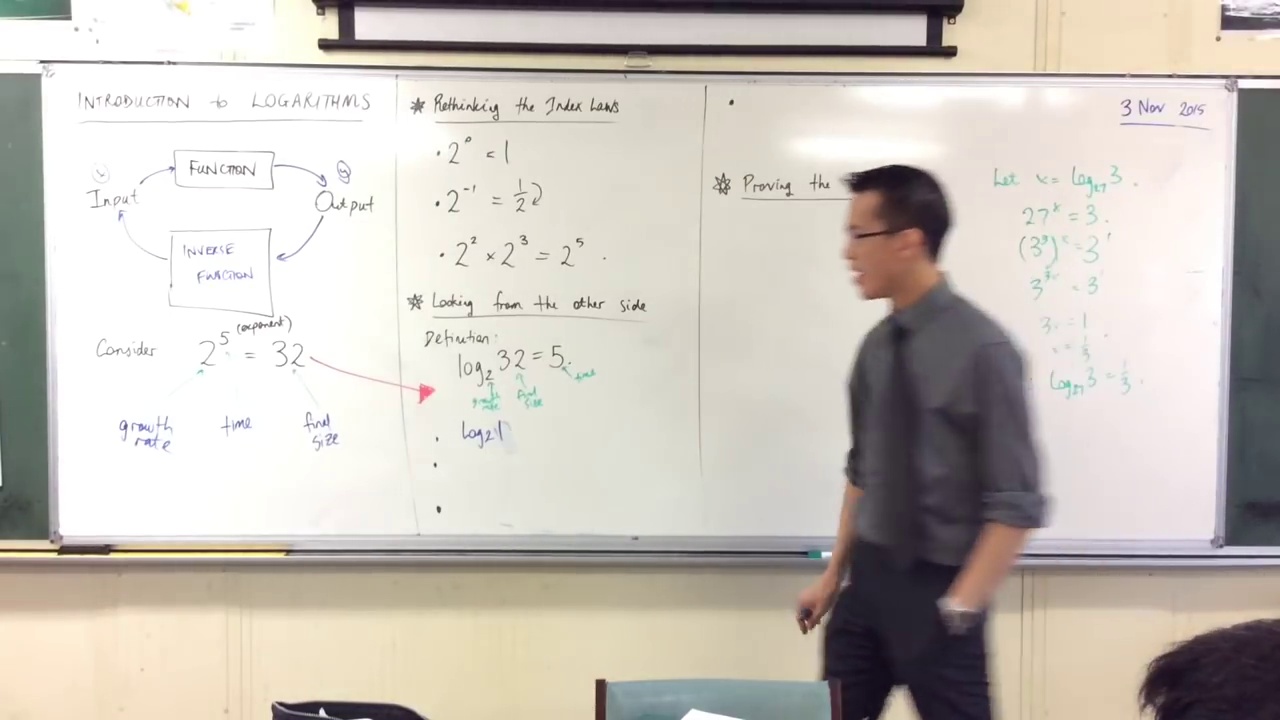 INTRODUCTION to LOGARITHMS
FUNCTION
(x)
(y)
Input
Output
INVERSE
FUNCTION
Consider 2^5 (exponent) = 32
growth
rate
time
final
size
* Rethinking the Index Laws
• 2^0 = 1
• 2^-1 = 1/2
• 2^2 × 2^3 = 2^5.
* Looking from the other side
Definition:
log_2 32 = 5.
growth
rate
final
size
time
• log_2 1
•
•
•
* Proving the
3 Nov 2015
Let x = log_27 3.
27^x = 3.
(3^3)^x = 3^1
3^3x = 3
3x = 1
x = 1/3.
log_27 3 = 1/3.